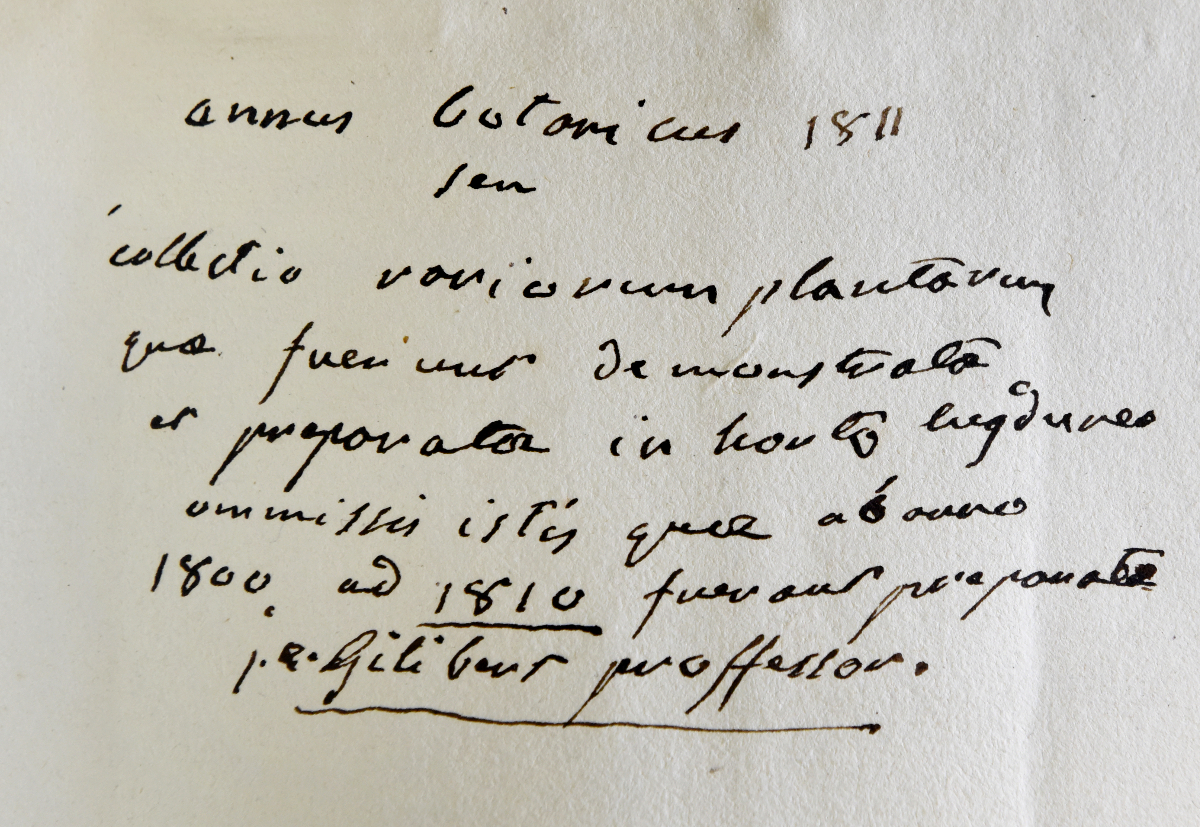 annus botanicus 1811
seu
collectio rariorum plantarum
quæ fuerunt demonstratæ
et preparatæ in horto lugduneo
ommissis istis quæ ab anno
1800 ad 1810 fuerant preparatæ
per Gilibert proffessor.